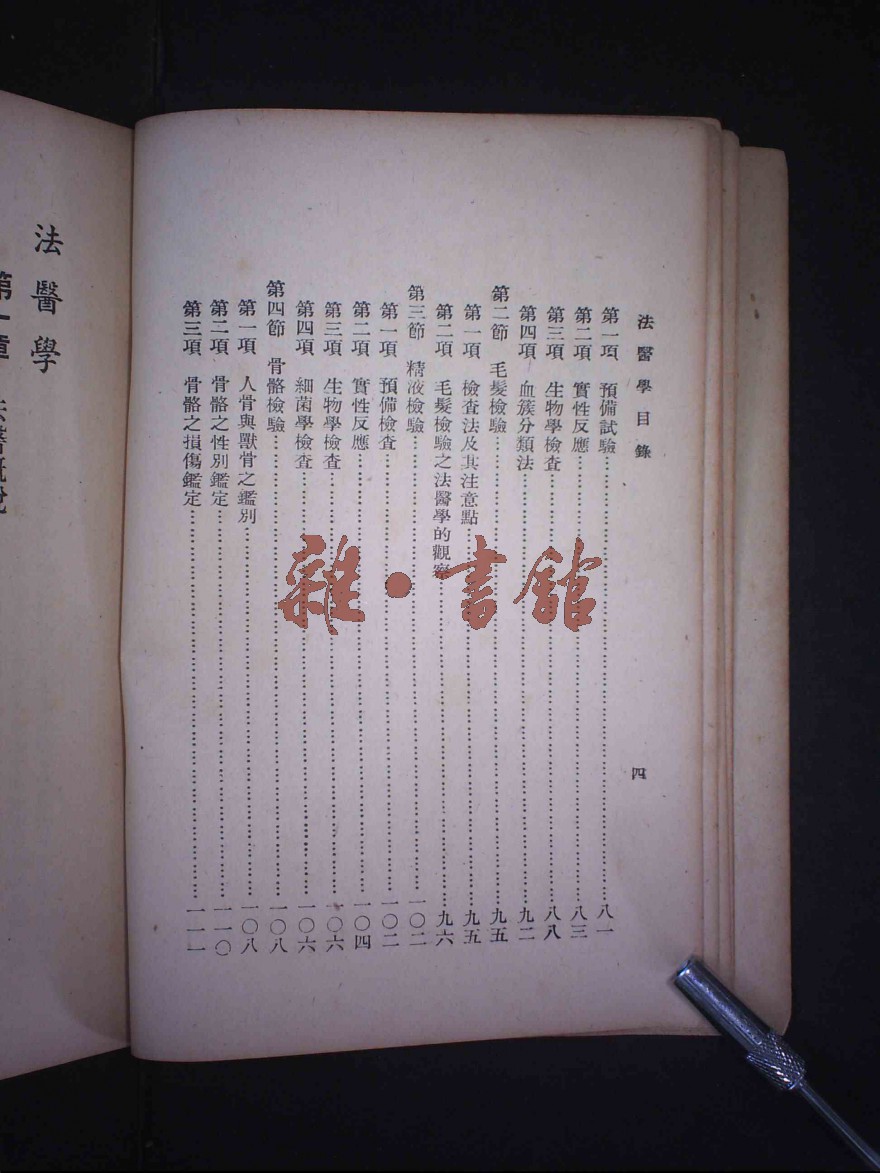 法醫學目錄
四
第一項 預備試驗……八一
第二項 實性反應……八三
第三項 生物學檢查……八八
第四項 血簇分類法……九二
第二節 毛髮檢驗……九五
第一項 檢查法及其注意點……九五
第二項 毛髮檢驗之法醫學的觀察……九六
第三節 精液檢驗……一〇二
第一項 預備檢查……一〇二
第二項 實性反應……一〇四
第三項 生物學檢查……一〇六
第四項 細菌學檢查……一〇六
第四節 骨骼檢驗……一〇八
第一項 人骨與獸骨之鑑別……一〇八
第二項 骨骼之性別鑑定……一一〇
第三項 骨骼之損傷鑑定……一一一
法醫學
第一章 法醫概說
雜·書館